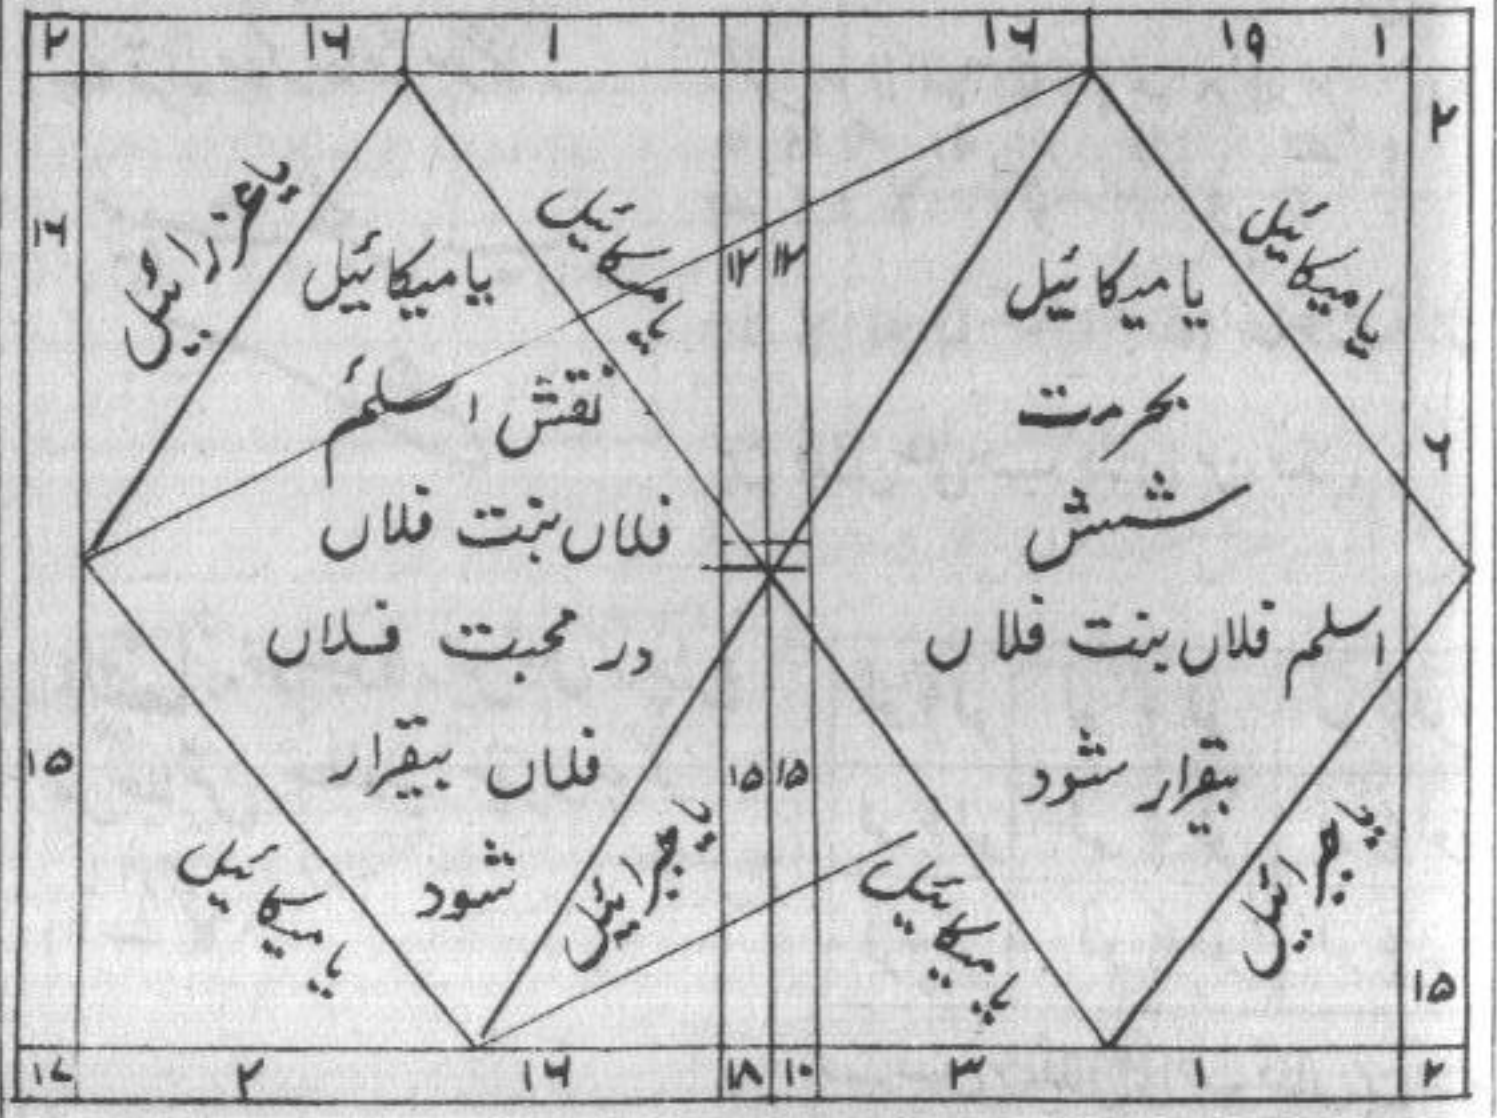 ۱ ۱۹ ۱۶
۲
۶
۱۵
یا میکائیل
یا میکائیل
بحرمت
شمش
اسلم فلاں بنت فلاں
بیقرار شود
یا جبرائیل
یا میکائیل
۲ ۱ ۳ ۱۰
۱۲ ۱۲
۱۵ ۱۵
۱ ۱۶ ۲
۱۶
۱۵
یا میکائیل
یا عزرائیل
یا میکائیل
نقش اسلم
فلاں بنت فلاں
در محبت فلاں
فلاں بیقرار
شود
یا جبرائیل
یا میکائیل
۱۸ ۱۶ ۲ ۱۷